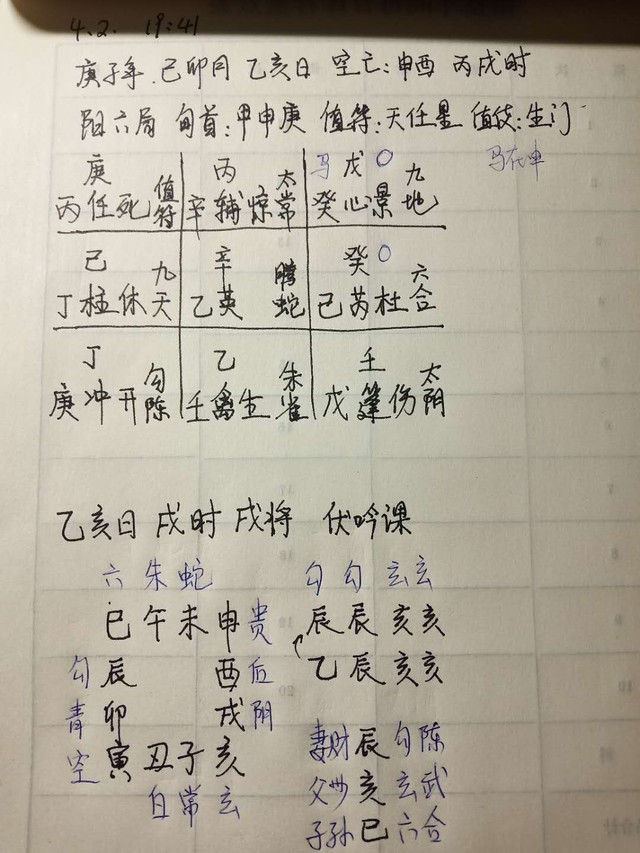 4.2. 19:41
庚子年.己卯月 乙亥日 空亡:申酉 丙戌时
阳六局 旬首:甲申庚 值符:天任星 值使:生门
庚 丙 马 戊 ○ 马在申
丙任死 值符 辛辅惊 太常 癸心景 九地
己 辛 癸 ○
丁柱休 九天 乙英 腾蛇 己芮杜 六合
丁 乙 壬
庚冲开 勾陈 壬禽生 朱雀 戊蓬伤 太阴
乙亥日 戌时 戌将 伏吟课
六 朱 蛇 勾 勾 玄 玄
巳 午 未 申 贵 辰 辰 亥 亥
勾 辰 酉 后 乙 辰 亥 亥
青 卯 戌 阴
空 寅 丑 子 亥 妻财 辰 勾陈
白 常 玄 父 亥 玄武
子孙 巳 六合